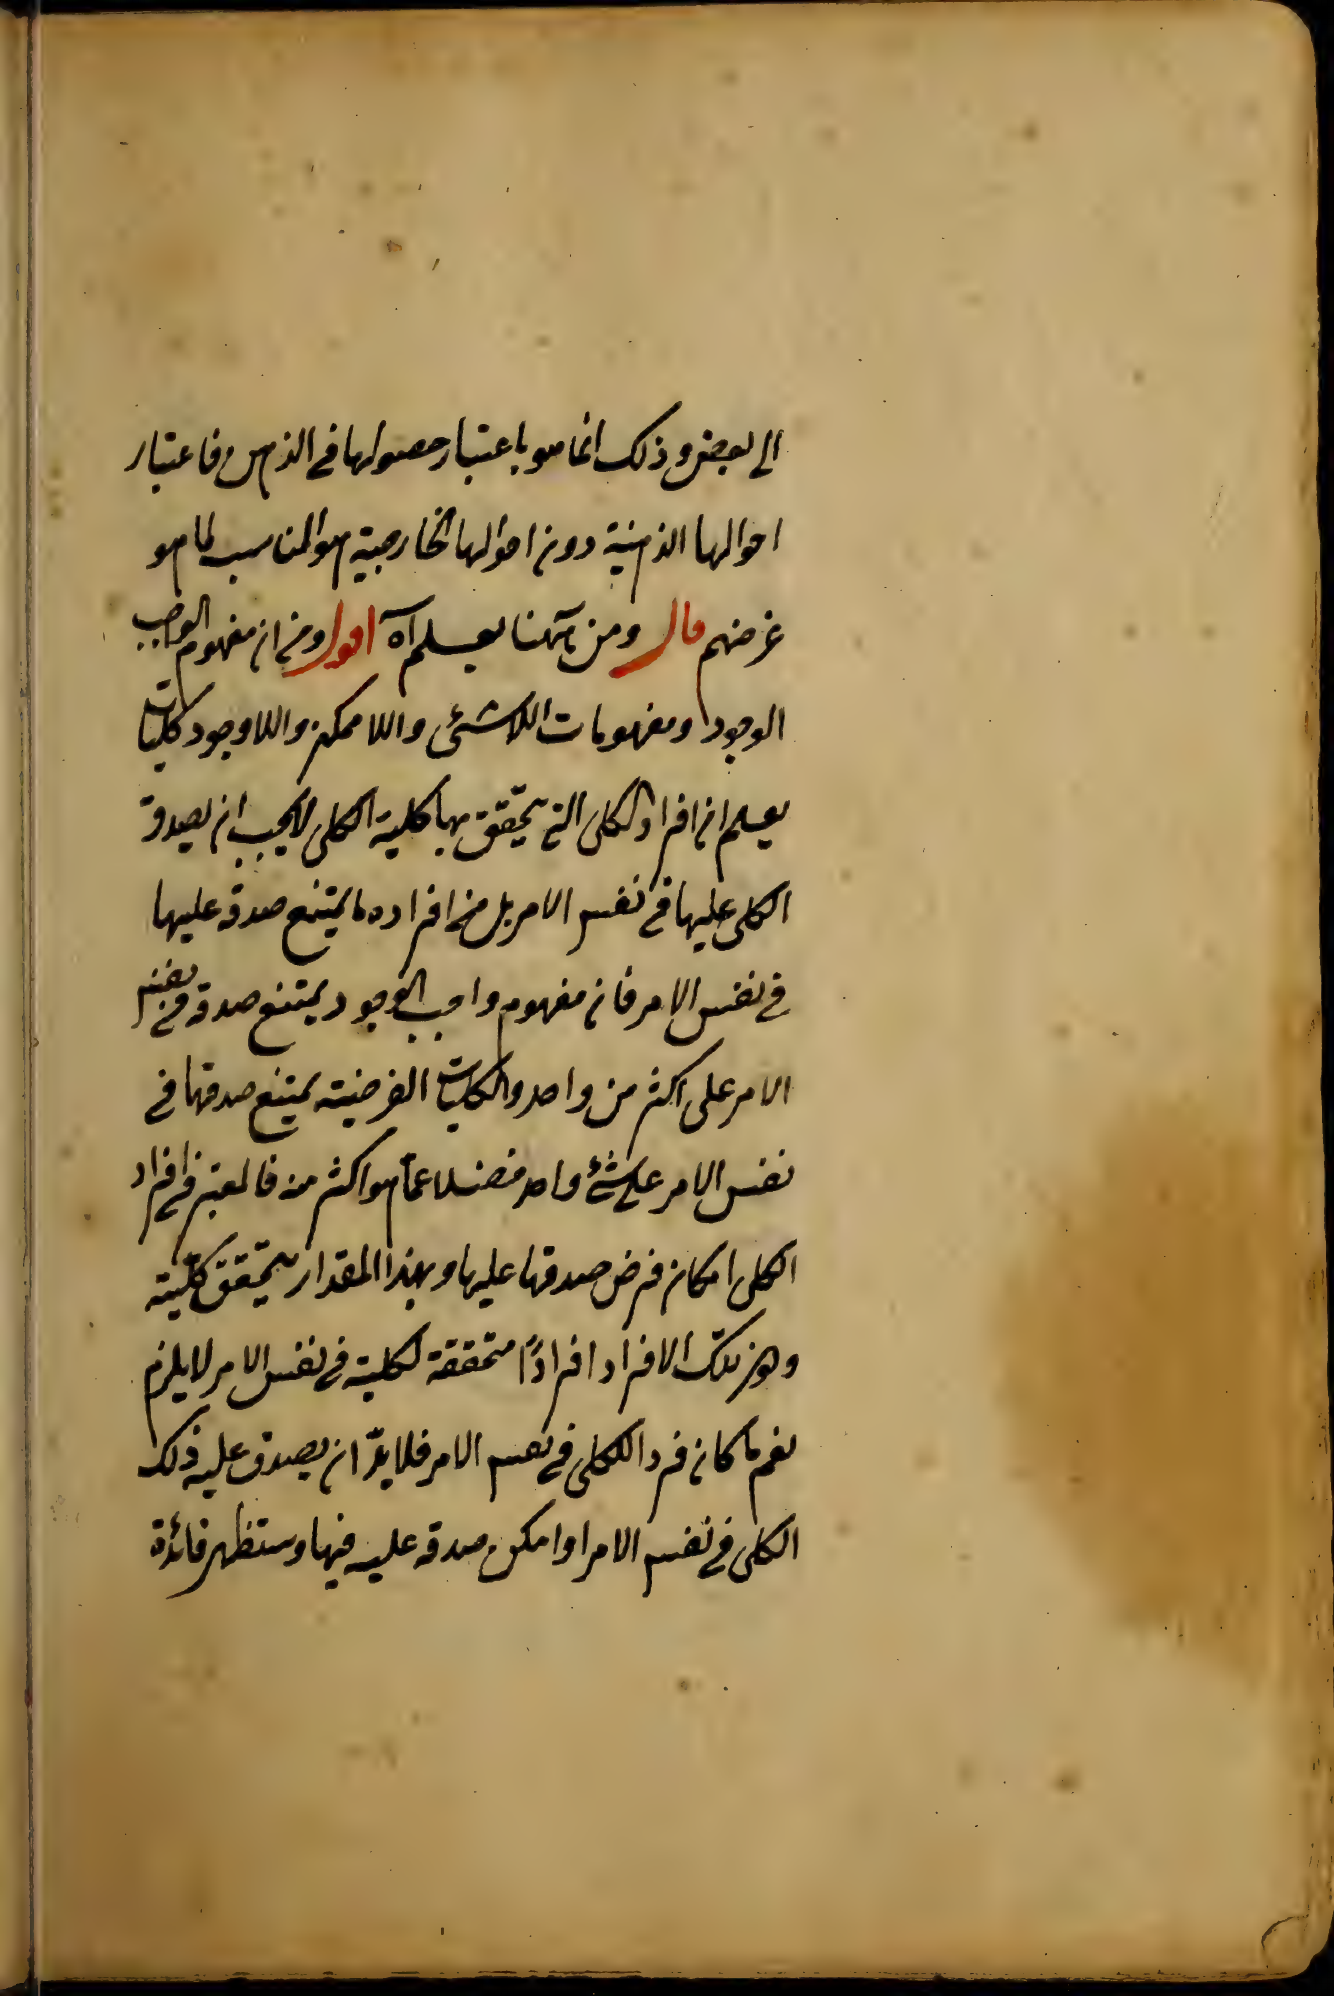 الى بعض وذلك انما هو باعتبار حصولها فى الذهن فاعتبار
احوالها الذهنية دون احوالها الخارجية هو المناسب لما هو
غرضهم قال ومن ههنا يعلم آه اقول ومن ان مفهوم الواجب
الوجود ومفهومات اللاشئ واللاممكن واللاوجود كليات
يعلم ان افراد الكلى التى يتحقق بها كلية الكلى لا يجب ان يصدق
الكلى عليها فى نفس الامر بل من افراده ما يمتنع صدقه عليها
فى نفس الامر فان مفهوم واجب الوجود يمتنع صدقه فى نفس
الامر على اكثر من واحد والكليات الفرضية يمتنع صدقها فى
نفس الامر على شئ واحد فضلا عما هو اكثر منه فالمعتبر فى افراد
الكلى امكان فرض صدقها عليها وبهذا المقدار يتحقق كليته
وكون تلك الافراد افرادًا متحققة لكلية فى نفس الامر لا يلزم
نعم ما كان فردا لكلى فى نفس الامر فلا بدّ ان يصدق عليه ذلك
الكلى فى نفس الامر او امكن صدقه عليه فيها وستظهر فائدة